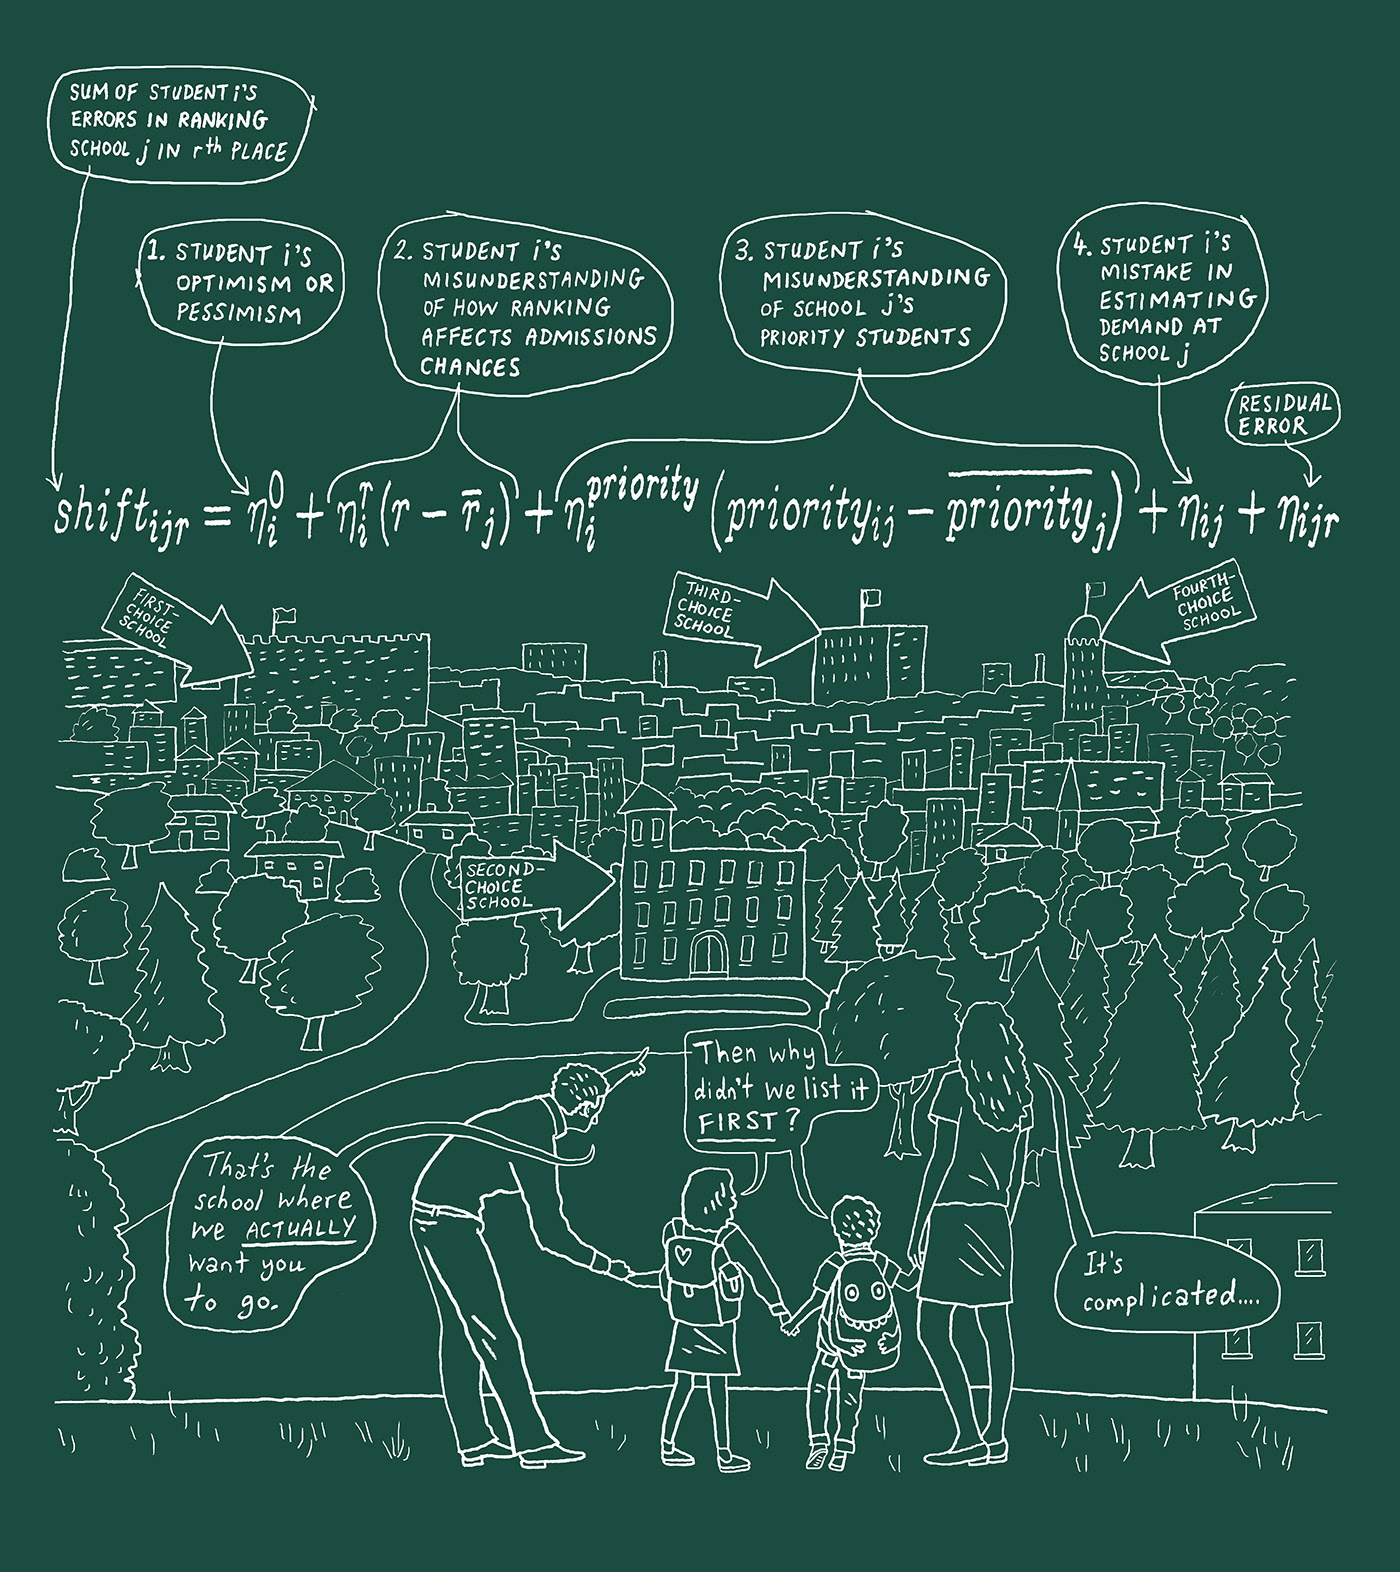 SUM OF STUDENT i'S
ERRORS IN RANKING
SCHOOL j IN rth PLACE
1. STUDENT i'S
OPTIMISM OR
PESSIMISM
2. STUDENT i'S
MISUNDERSTANDING
OF HOW RANKING
AFFECTS ADMISSIONS
CHANCES
3. STUDENT i'S
MISUNDERSTANDING
OF SCHOOL j'S
PRIORITY STUDENTS
4. STUDENT i'S
MISTAKE IN
ESTIMATING
DEMAND AT
SCHOOL j
RESIDUAL
ERROR
shift_ijr = η_i^0 + η_i^r (r − r̄_j) + η_i^priority (priority_ij − \overline{priority}_j) + η_ij + η_ijr
FIRST-
CHOICE
SCHOOL
THIRD-
CHOICE
SCHOOL
FOURTH-
CHOICE
SCHOOL
SECOND-
CHOICE
SCHOOL
That's the
school where
we ACTUALLY
want you
to go.
Then why
didn't we list it
FIRST?
It's
complicated....